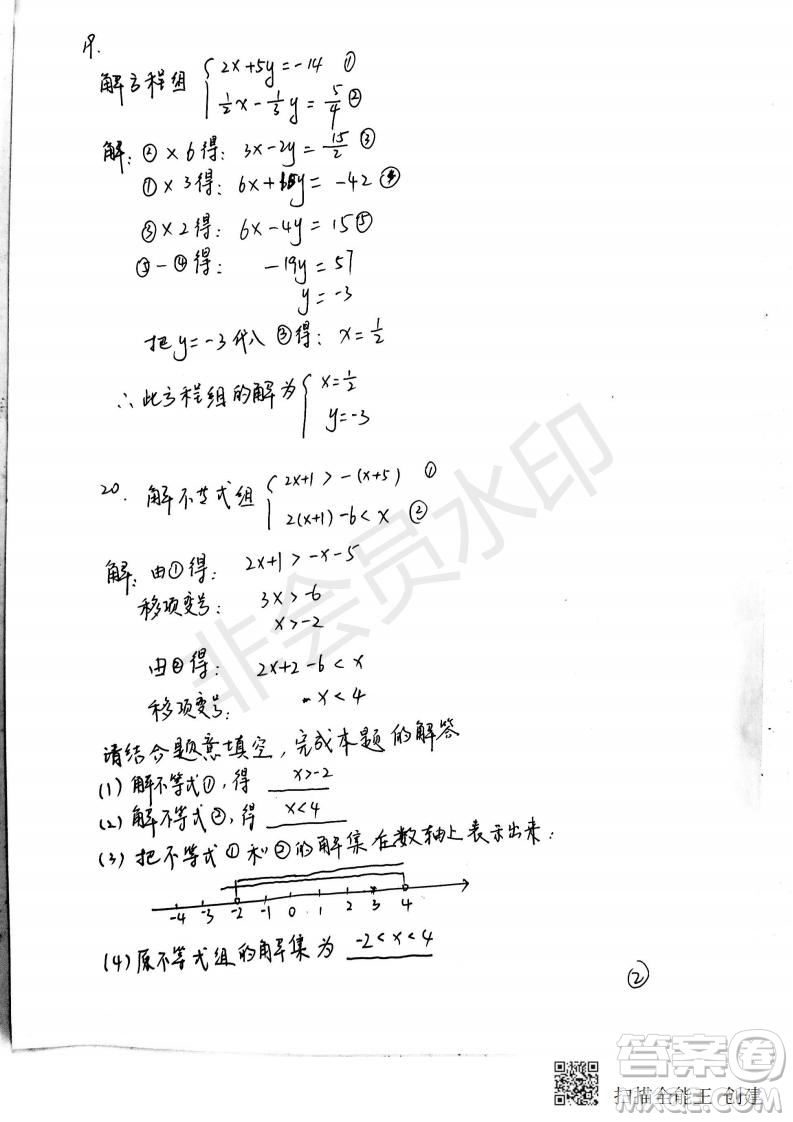 19.
解方程组 { 2x+5y=-14 ①
1/2x-1/3y=5/4 ②
解: ②×6得: 3x-2y=15/2 ③
①×3得: 6x+15y=-42 ④
③×2得: 6x-4y=15 ⑤
⑤-④得: -19y=57
y=-3
把y=-3代入③得: x=1/2
∴此方程组的解为 { x=1/2
y=-3
20. 解不等式组 { 2x+1>-(x+5) ①
2(x+1)-6<x ②
解: 由①得: 2x+1>-x-5
移项变号: 3x>-6
x>-2
由②得: 2x+2-6<x
移项变号: x<4
请结合题意填空,完成本题的解答
(1)解不等式①,得 x>-2
(2)解不等式②,得 x<4
(3)把不等式①和②的解集在数轴上表示出来:
-4 -3 -2 -1 0 1 2 3 4
(4)原不等式组的解集为 -2<x<4
②
非会员水印
答案圈
扫描全能王 创建